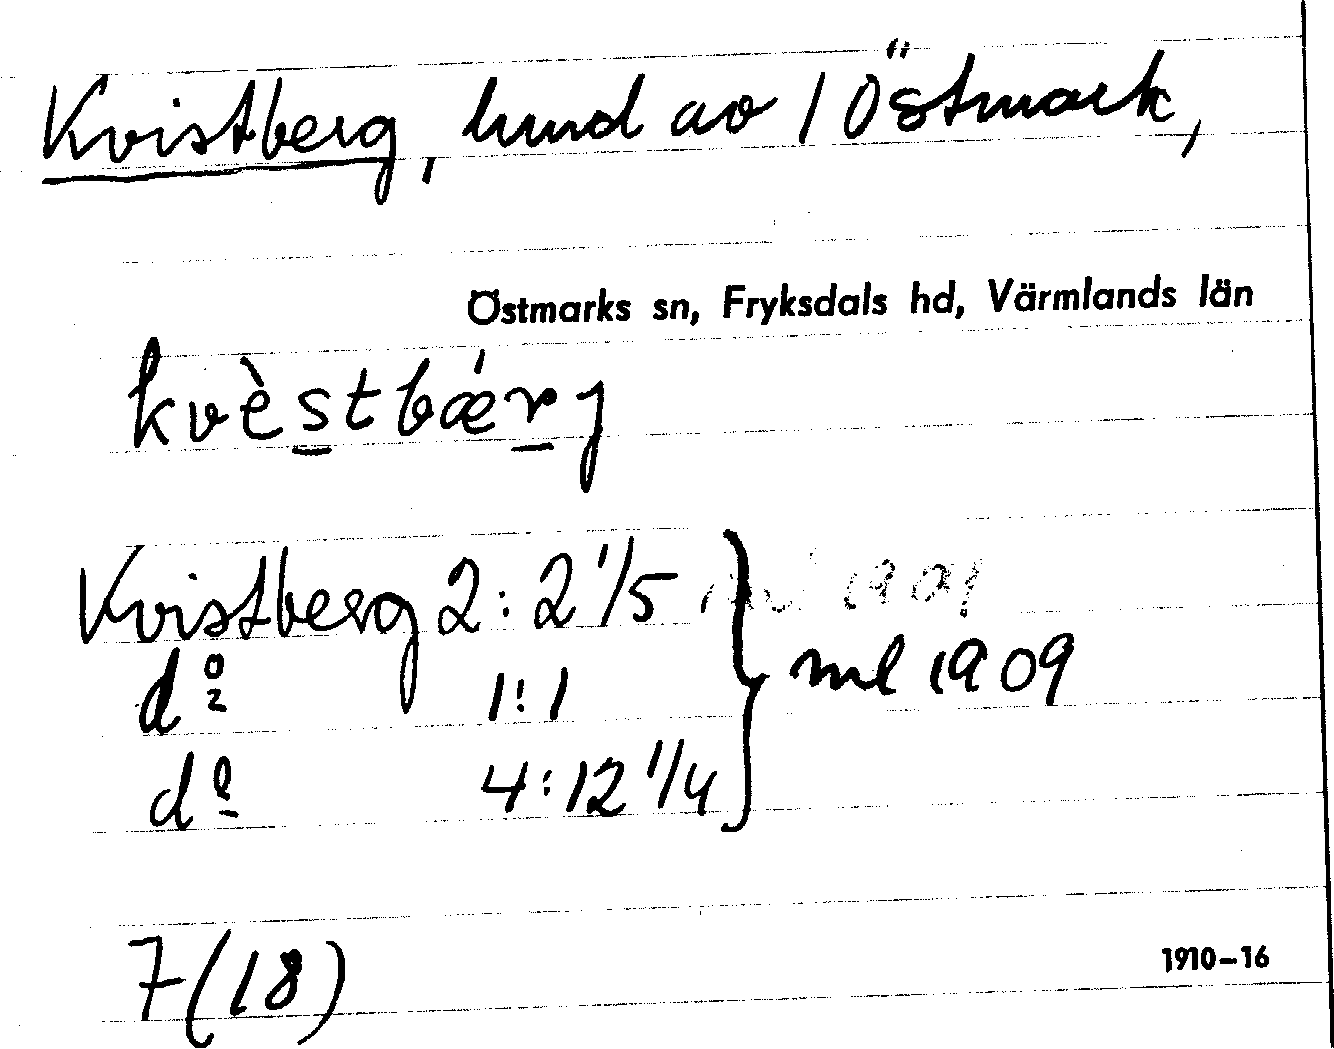 Kvistberg, hmd av 1 Östmark,
Östmarks sn, Fryksdals hd, Värmlands län
kvèstbǽrj
Kvistberg 2:2 1/5 ml 1909
do 1:1
do 4:12 1/4
ml 1909
7(18)
1910-16